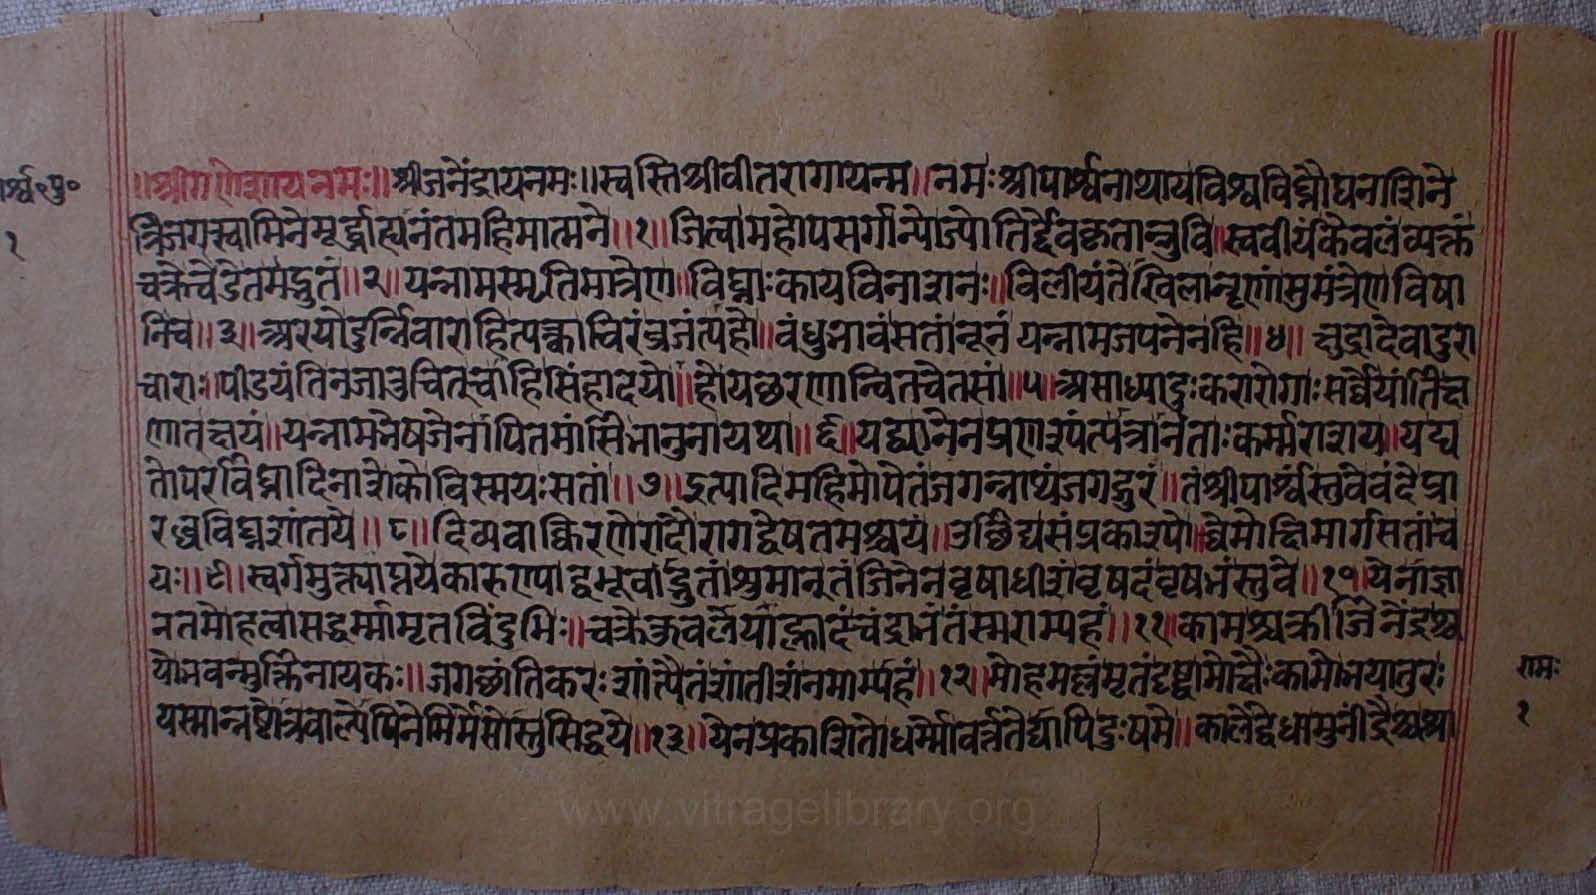 र्श्व॰पु॰
१
॥श्रीगणेशायनमः॥श्रीजनेंद्रायनमः॥स्वस्तिश्रीवीतरागायन्म॥नमःश्रीपार्श्वनाथायविश्वविघ्नौघनाशिने
त्रिजगत्स्वामिनेमूर्द्ध्नाह्यनंतमहिमात्मने॥१॥जित्वामहोपसर्गान्योज्योतिर्द्देवकृतान्भुवि॥स्ववीर्यंकेवलंव्यक्तं
चक्रेचेडेतमद्भुतं॥२॥यन्नामस्मृतिमात्रेण॥विघ्नाःकायविनाशनः॥विलीयंतेखिलानृणांसुमंत्रेणविषा
निच॥३॥अरयोदुर्न्निवाराहित्यक्त्वाचिरंव्रजंत्यहो॥वंधुभावंसतांनूनंयन्नामजपनेनहि॥४॥क्षुद्रादेवादुरा
चाराः॥पीडयंतिनजातुचित्तूर्चाहिसिंहादयो॥होयछरणान्वितचेतसां॥५॥असाध्यादुःकरारोगाःसर्व्वेयांतिक्ष
णात्क्षयं॥यन्नामभेषजेनापितमांसिभानुनायथा॥६॥यद्ध्यानेनप्रणश्यंत्यत्रानंताःकर्म्मराशय॥यद्य
तोपरविघ्नादिनाशेकोविस्मयःसतां॥७॥इत्यादिमहिमोपेतंजगन्नाथंजगद्गुरं॥तंश्रीपार्श्वंस्तुवेवंदेप्रा
रब्धविघ्नशांतये॥८॥दिव्यवाक्किरणेरादौरागद्वेषतमश्चयं॥उछिद्यसंप्रकाश्यो॥च्चैमोक्षिमार्गसतांच
यः॥९॥स्वर्गमुक्त्याप्तयेकारुण्याद्बभूवाद्भुतांशुमानूतंजिनेनवृषाधीशंवृषदंवृषभंस्तुवे॥१०॥येनाज्ञा
नतमोहत्वासद्धर्म्मामृतविंदुभिः॥चक्रेकुवलेयाह्लादंचंद्राभंतंस्मराम्यहं॥११॥कामश्चक्रीजिनेंद्रश्च
योभवन्मुक्तिनायकः॥जगछांतिकरःशांत्यैतंशांतीशंनमाम्यहं॥१२॥मोहमल्लंमृतंदृष्ट्वामोच्चैःकामोभयातुरः
यस्मान्नष्टोत्रवाल्येपिनेमिर्मेसोस्तुसिद्धये॥१३॥येनप्रकाशितोधर्म्मोवर्त्ततेद्यापिदुःषमे॥कालेद्वेधामुनींद्रैश्चश्रा
रामः
१
www.vitragelibrary.org